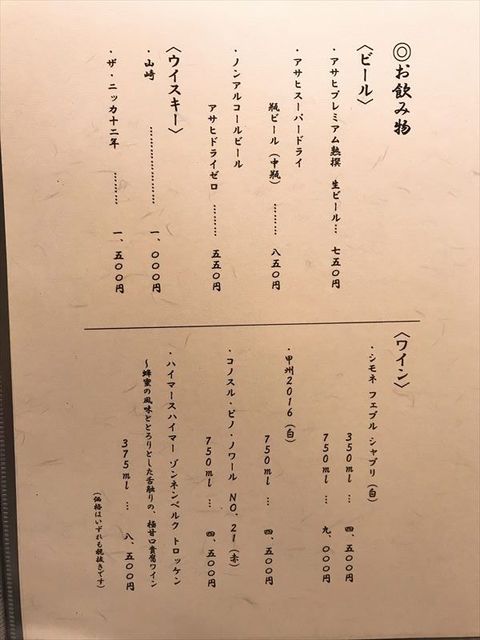 ◎お飲み物
〈ビール〉
・アサヒプレミアム熟撰 生ビール… 七五〇円
・アサヒスーパードライ
瓶ビール（中瓶）……… 八五〇円
・ノンアルコールビール
アサヒドライゼロ ……… 五五〇円
〈ウイスキー〉
・山崎 ……………… 一、〇〇〇円
・ザ・ニッカ十二年 ……… 一、五〇〇円
〈ワイン〉
・シモネ フェブル シャブリ（白）
350ml … 四、五〇〇円
750ml … 九、〇〇〇円
・甲州2016（白）
750ml … 四、五〇〇円
・コノスル・ピノ・ノワール NO.21（赤）
750ml … 四、五〇〇円
・ハイマースハイマー ゾンネンベルク トロッケン
～蜂蜜の風味ととろりとした舌触りの、極甘口貴腐ワイン
375ml … 八、五〇〇円
（価格はいずれも税抜きです）